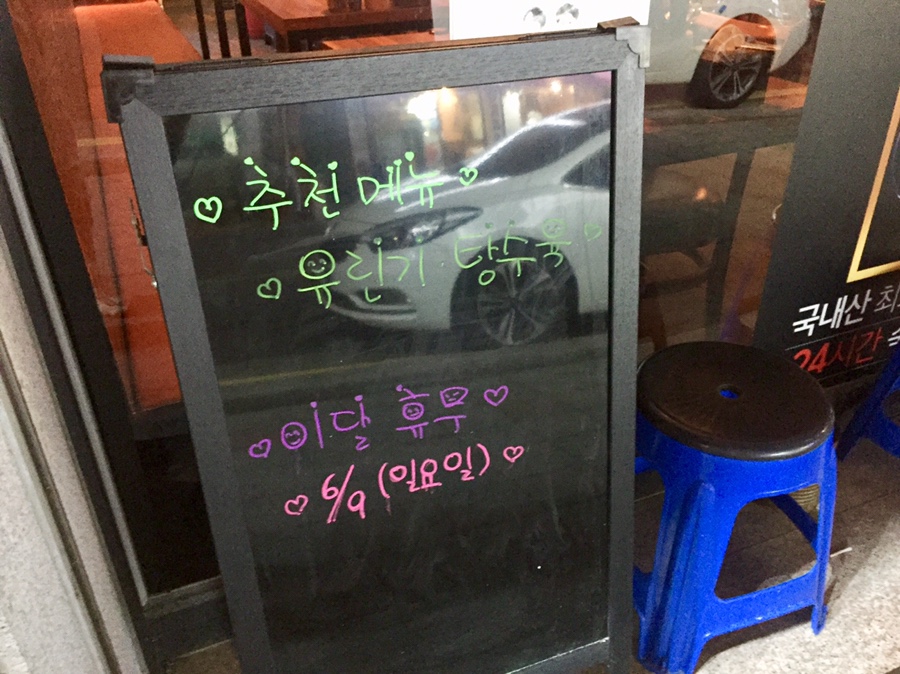 ♡ 추천메뉴 ♡
♡ 유린기 탕수육 ♡
♡ 이달 휴무 ♡
♡ 6/9 (일요일) ♡
국내산
24시간